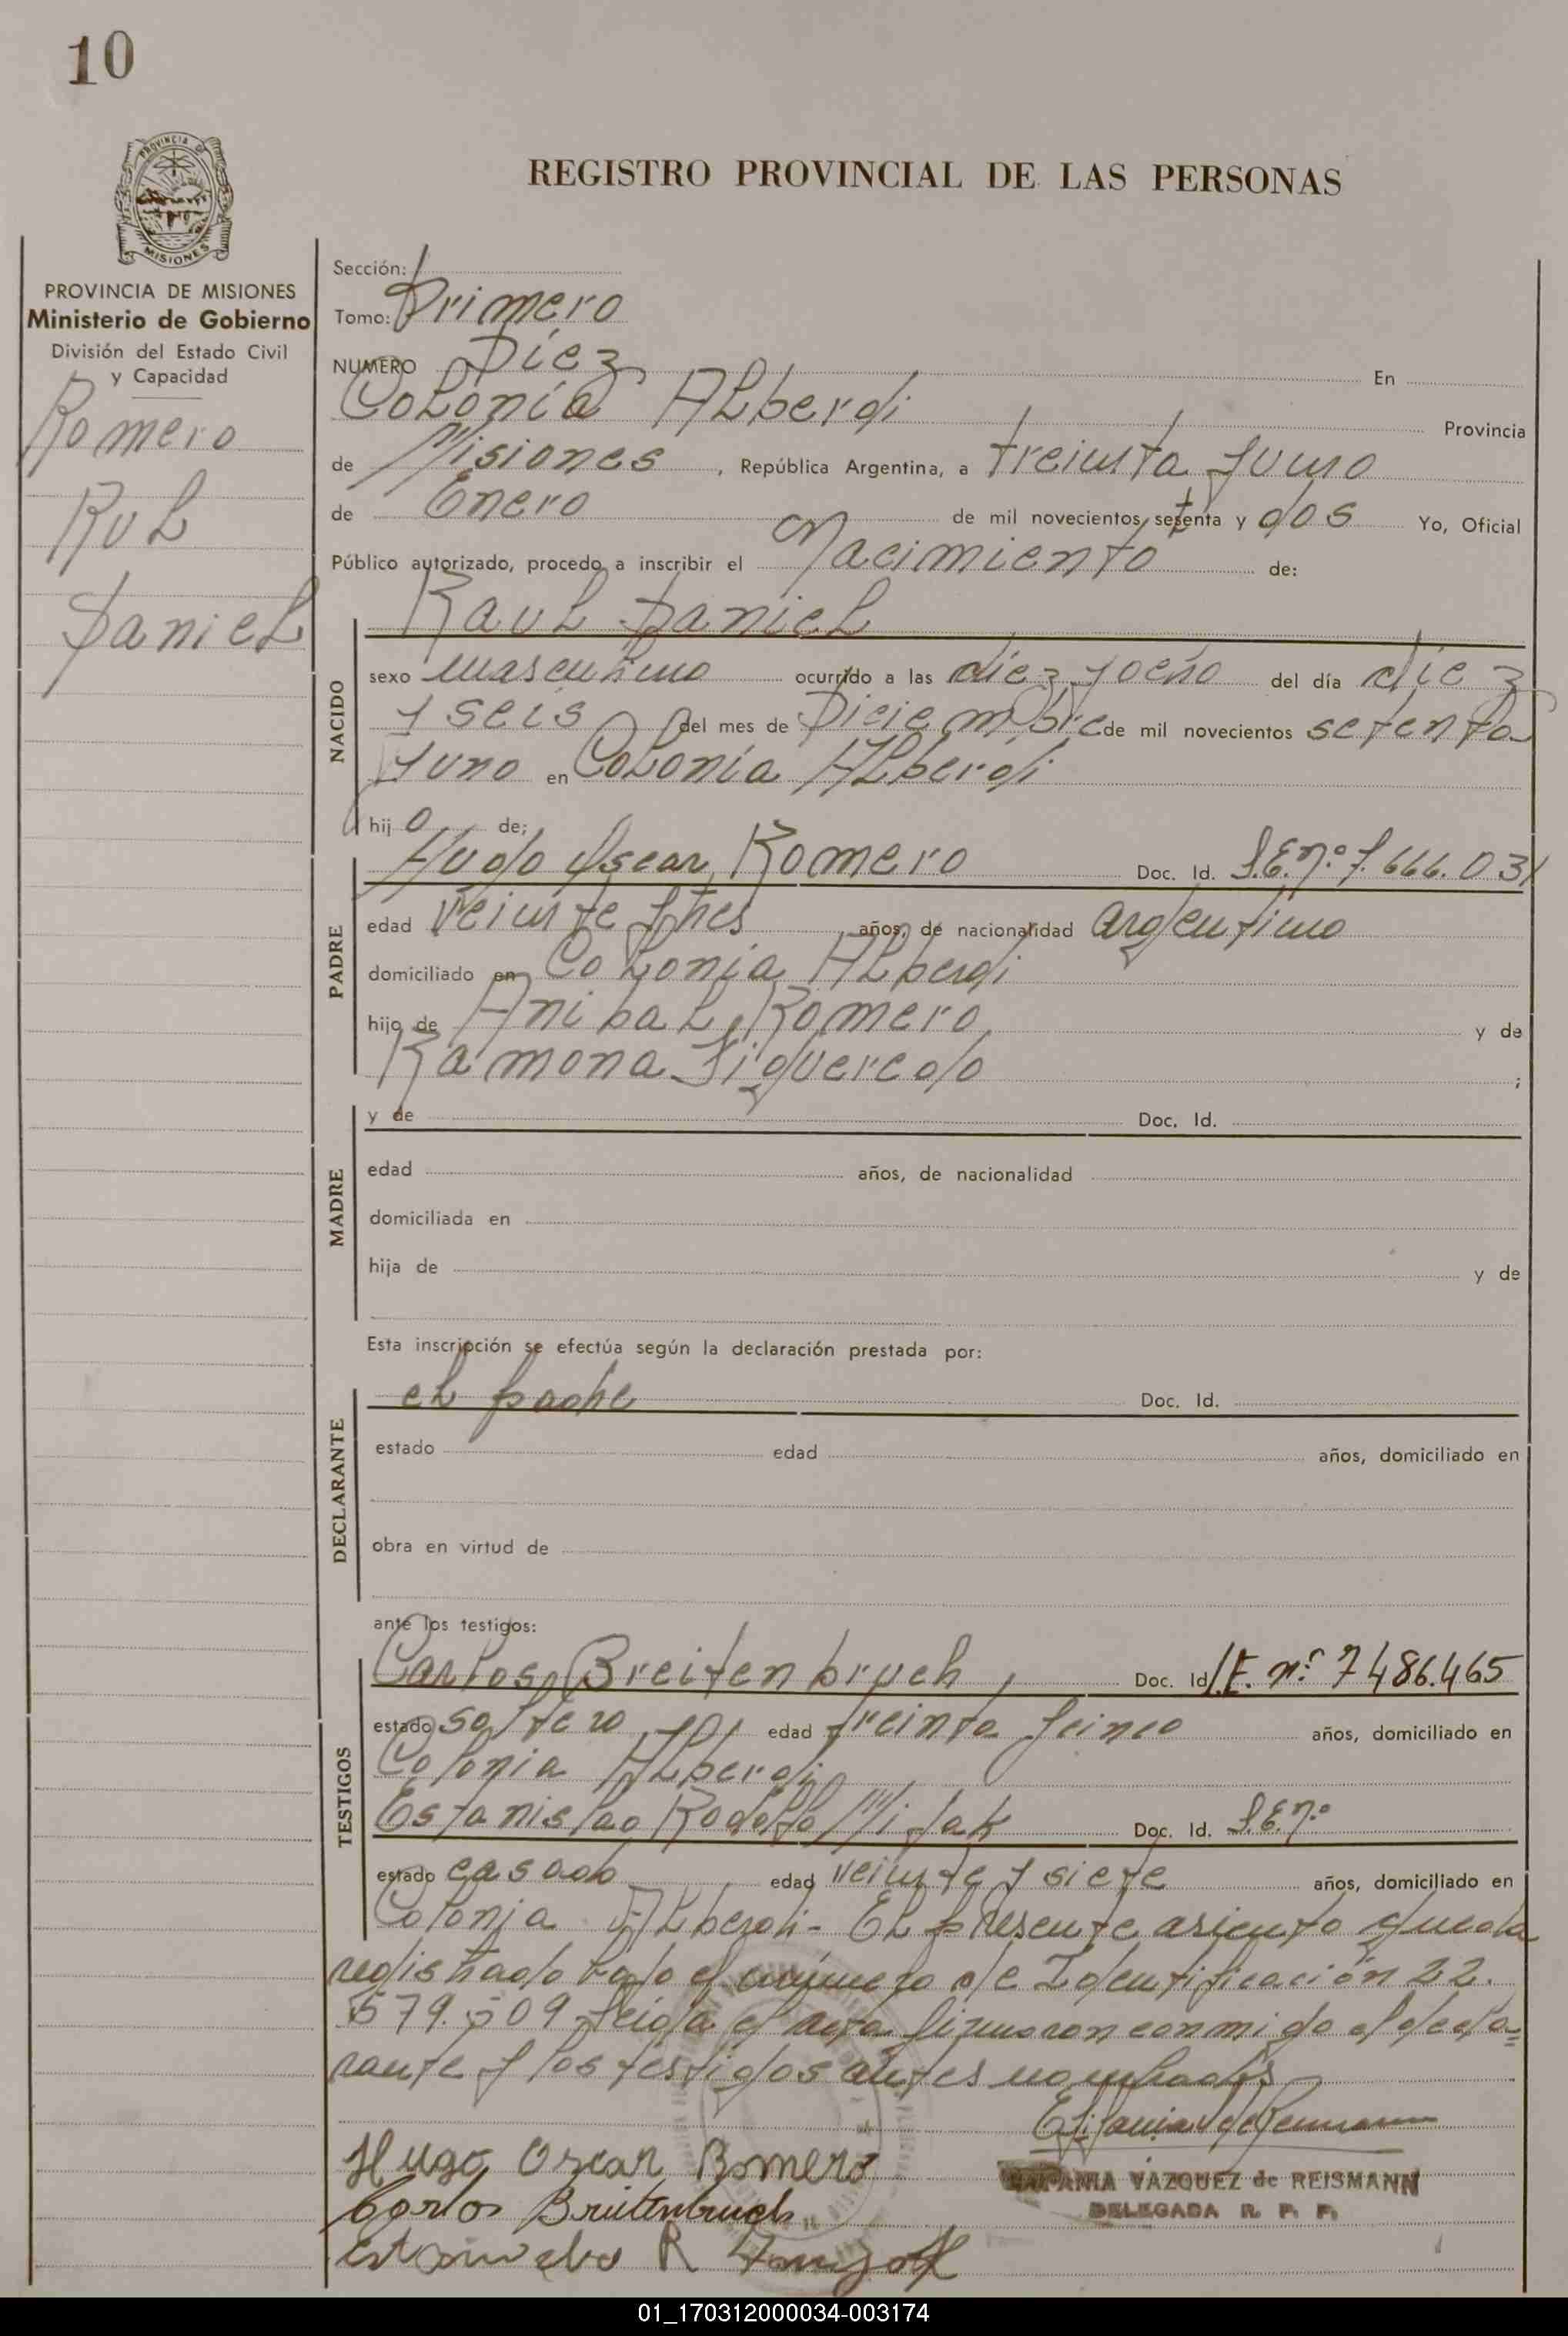 10
REGISTRO PROVINCIAL DE LAS PERSONAS
PROVINCIA DE
MISIONES
PROVINCIA DE MISIONES
Ministerio de Gobierno
División del Estado Civil
y Capacidad
Romero
Rul
Daniel
Sección:
Tomo: Primero
NUMERO Diez En
Colonia ALberdi Provincia
de Misiones, República Argentina, a treinta y uno
de Enero de mil novecientos setenta y dos Yo, Oficial
Público autorizado, procedo a inscribir el Nacimiento de:
NACIDO
RauL DanieL
sexo masculino ocurrido a las diez y ocho del día diez
y seis del mes de Diciembre de mil novecientos setenta
y uno en Colonia ALberdi
hijo de;
PADRE
Hugo Oscar Romero Doc. Id. L.E.nº 7.666.031
edad Veinte y tres años, de nacionalidad argentino
domiciliado en Colonia ALberdi
hijo de AnibaL Romero y de
Ramona Figueredo ;
MADRE
y de Doc. Id.
edad años, de nacionalidad
domiciliada en
hija de y de
Esta inscripción se efectúa según la declaración prestada por:
DECLARANTE
eL padre Doc. Id.
estado edad años, domiciliado en
obra en virtud de
ante los testigos:
TESTIGOS
Carlos Breitenbruch, Doc. Id. L.E. nº 7486.465
estado soltero edad treinta y cinco años, domiciliado en
Colonia ALberdi
Estanislao Rodolfo Doc. Id. L.E.nº
estado casado edad veinte y siete años, domiciliado en
Colonia ALberdi- EL presente asiento queda
registrado bajo el número de Identificación 22.
579.509 Leida el acta firmaron conmigo el decla=
rante y los testigos antes nombrados
Hugo Oscar Romero
Carlos Breitenbruch
R
VAZQUEZ de REISMANN
DELEGADA R. P. P.
01_170312000034-003174